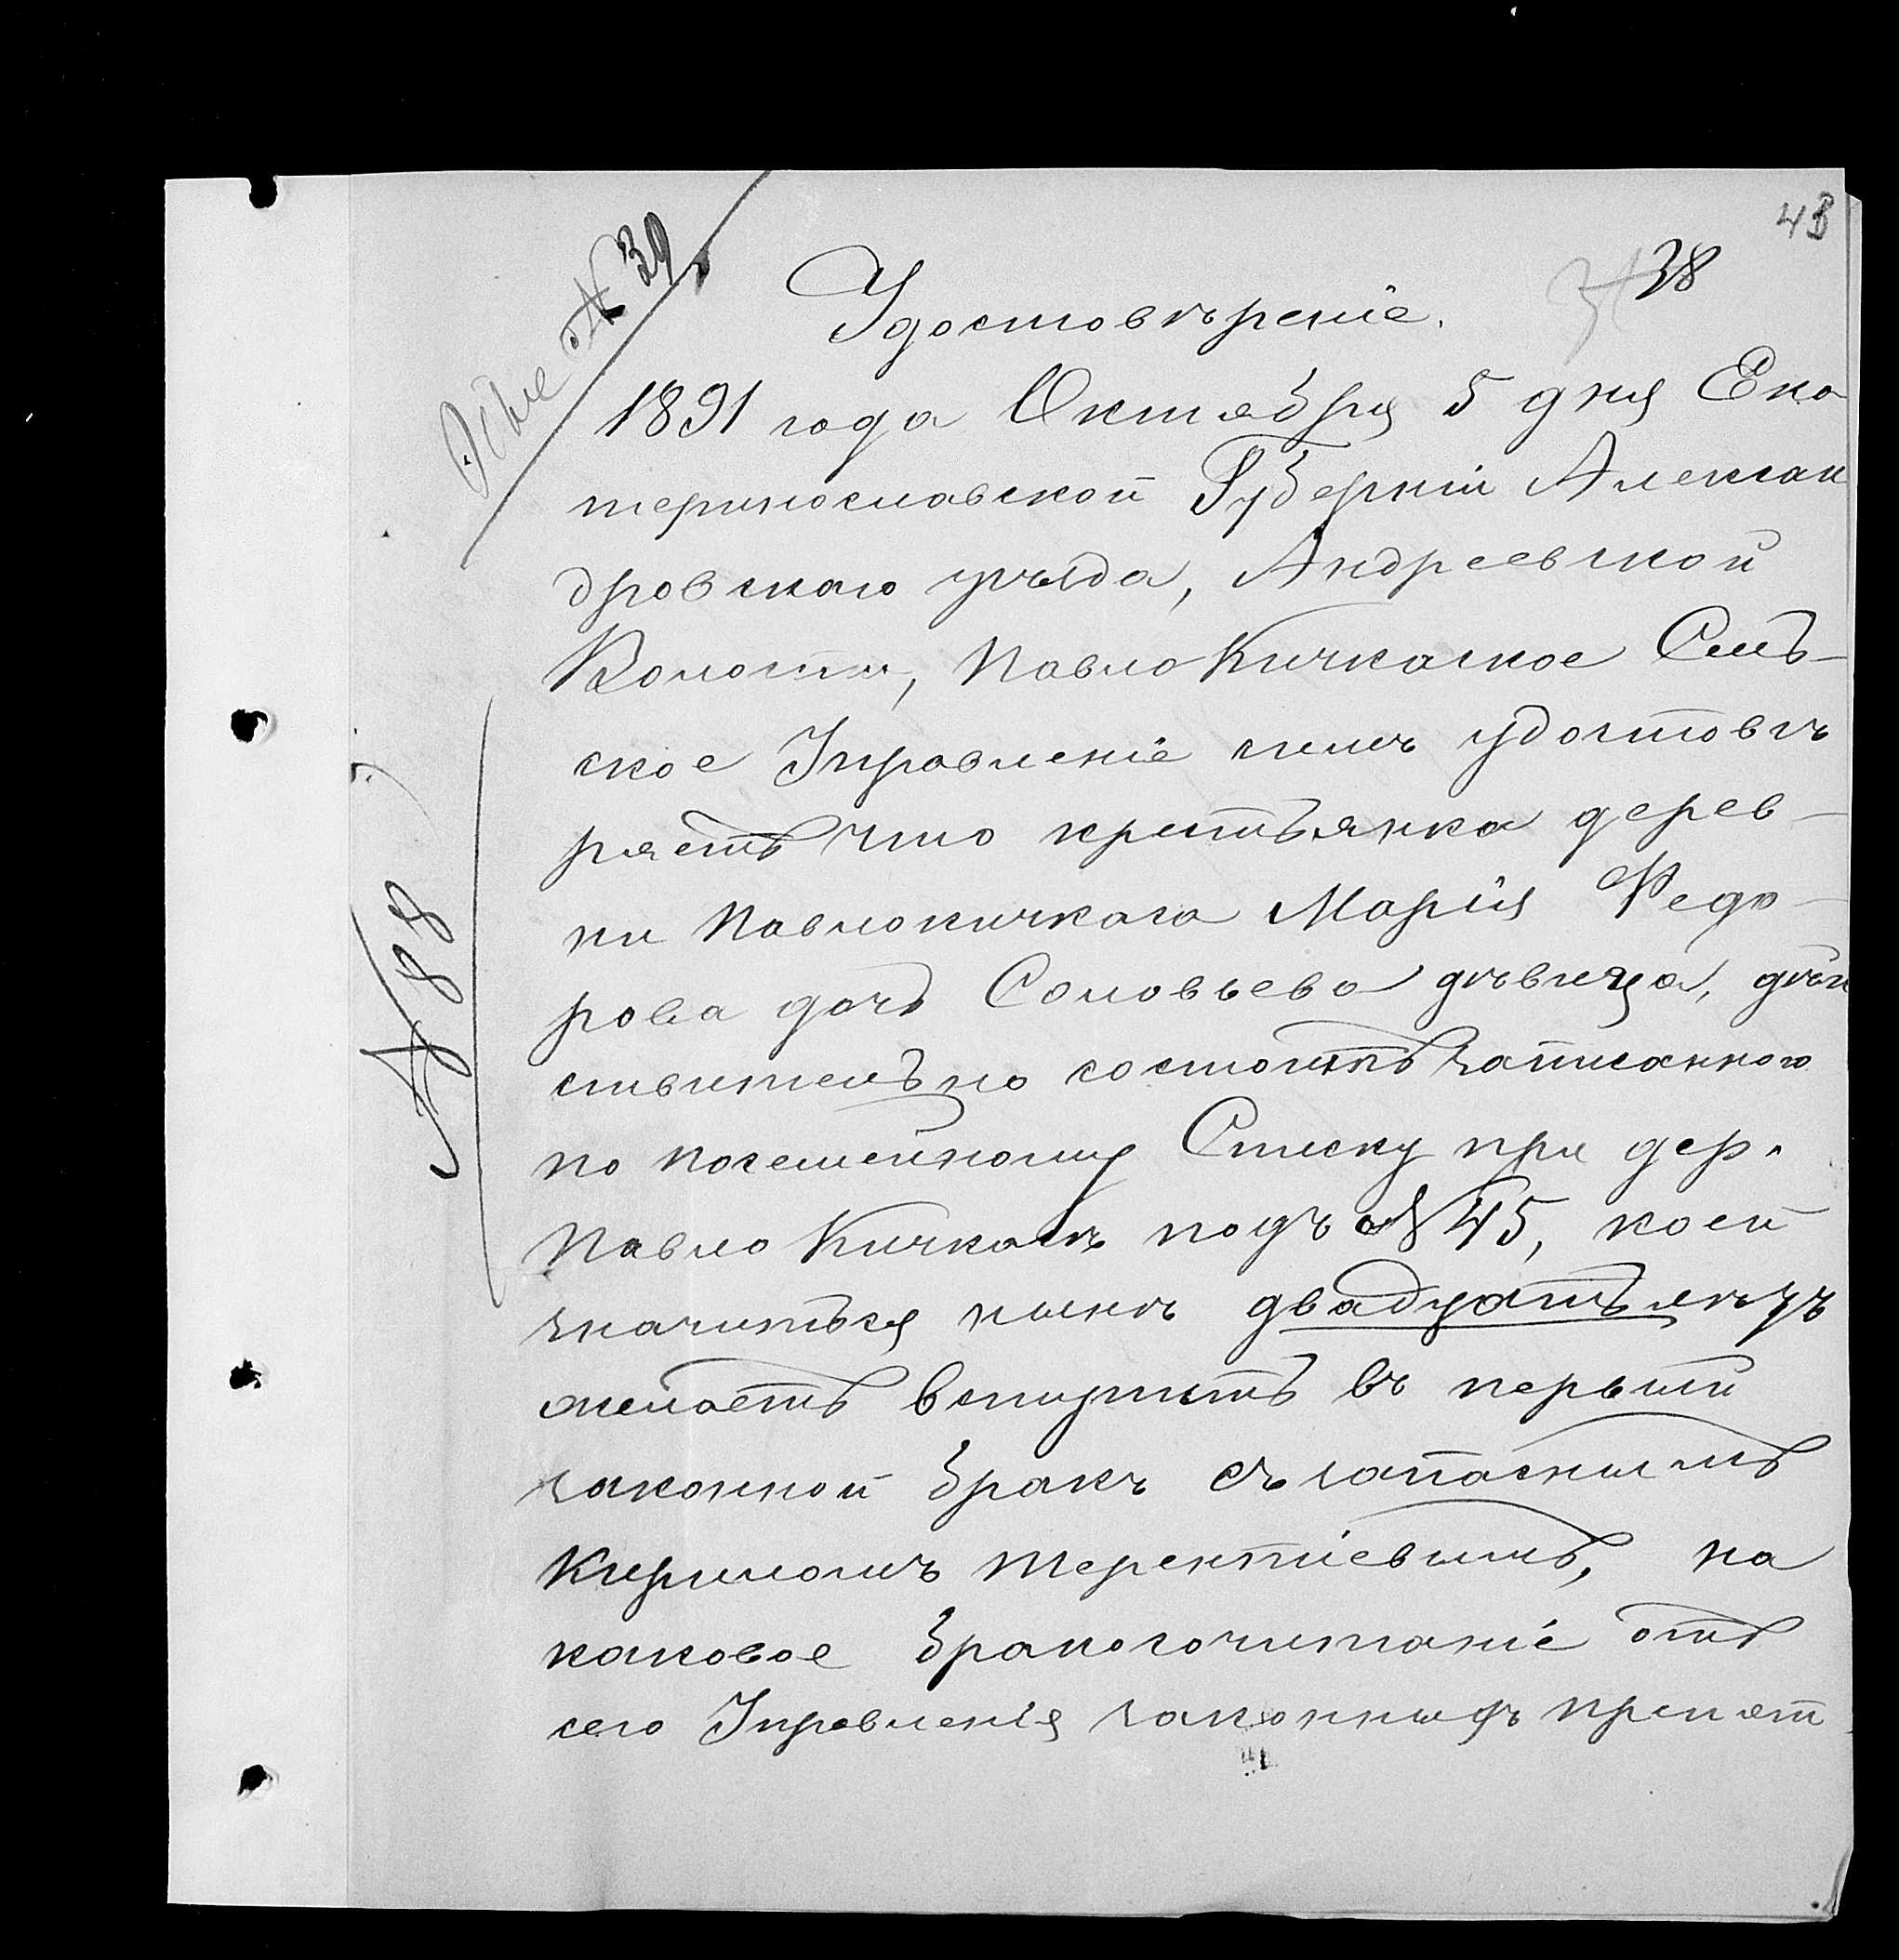 43
38
№ 39
Удостовѣреніе.
1891 года Октября 5 дня Ека
теринославской Губерніи Алексан
дровскаго уѣзда, Андреевской
Волости, Павло Кичкаское Сель-
ское Управленіе симъ удостовѣ
ряетъ что крестьянка дерев-
ни Павлокичкаса Марія Федо-
рова дочь Соловьева дѣвица, дѣй
ствительно состоитъ записанною
по посемейному Списку при дер.
Павло Кичкасъ подъ № 45, коей
значиться нынѣ двадцать лѣтъ
желаетъ вступить въ первый
законной бракъ съ запаснымъ
Кириломъ Терентіевымъ, на
каковое бракосочитаніе отъ
сего Управленія законныхъ препят
№ 88